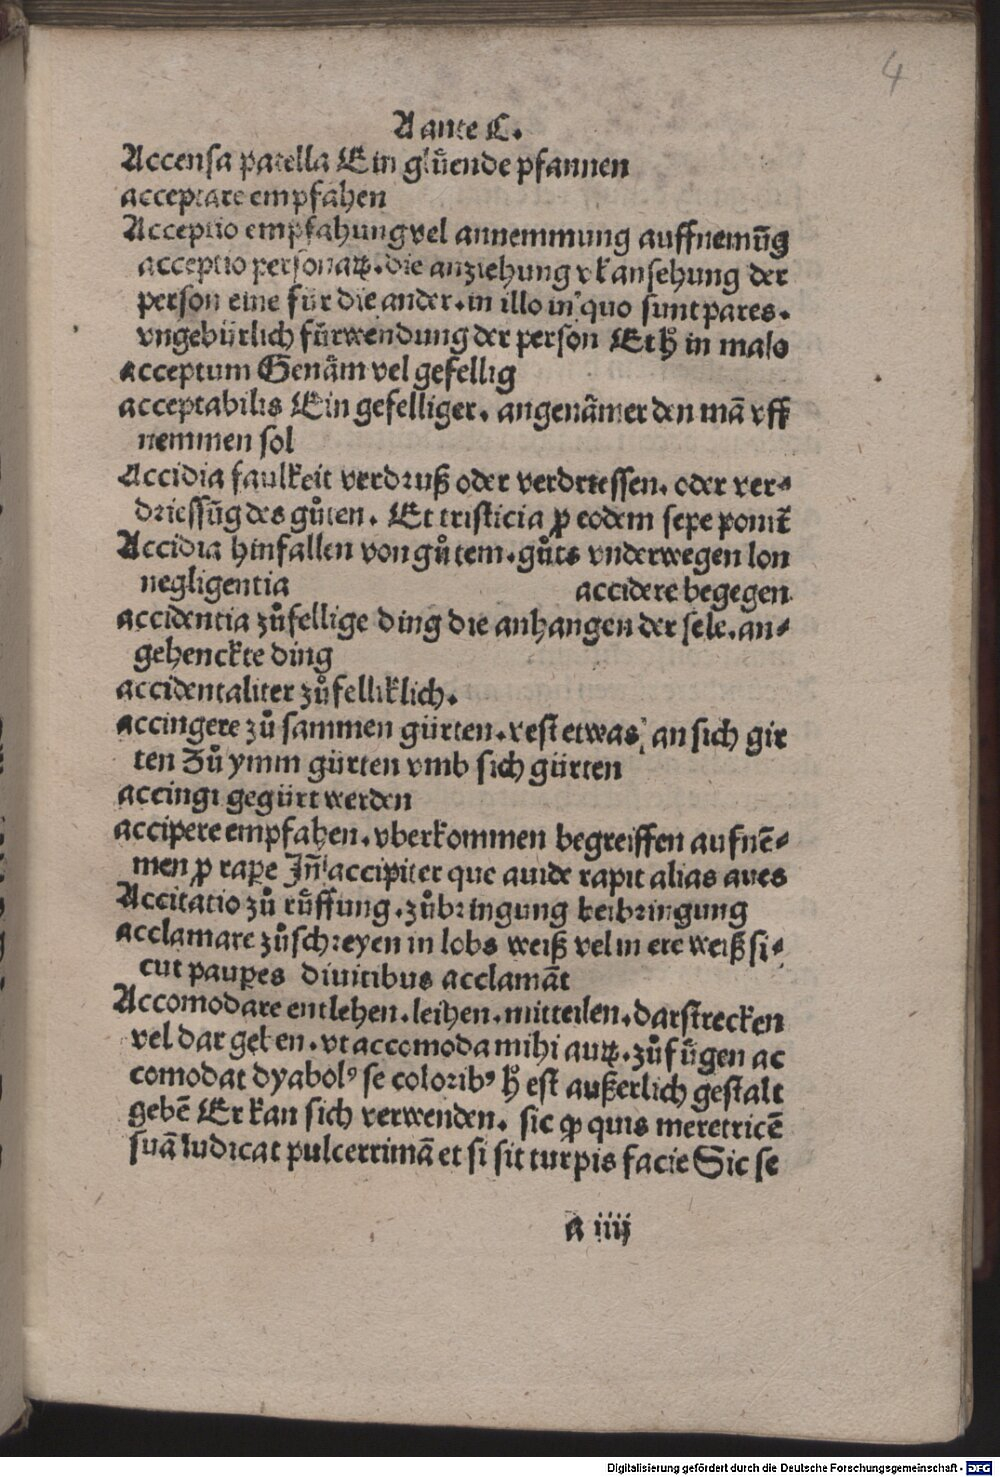 4
A ante C.
Accensa patella Ein glüende pfannen
acceptare empfahen
Acceptio empfahung vel annemmung auffnemūg
acceptio personaꝝ. die anziehung vl̕ ansehung der
person eine für die ander. in illo in quo sunt pares.
vngebürlich fürwendung der person Et h̕ in malo
acceptum Genäm vel gefellig
acceptabilis Ein gefelliger. angenämer den mā vff
nemmen sol
Accidia faulkeit verdruß oder verdriessen. oder ver⸗
driessūg des gůten. Et tristicia ꝓ eodem sepe ponit̄
Accidia hinfallen von gůtem. gůts vnderwegen lon
negligentia accidere begegen
accidentia zůfellige ding die anhangen der sele. an⸗
gehenckte ding
accidentaliter zůfelliklich.
accingere zů sammen gürten. vest etwas an sich gir
ten Zů ymm gürten vmb sich gürten
accingi gegürt werden
accipere empfahen. vberkommen begreiffen aufnē⸗
men ꝓ raꝑe Jn̄ accipiter que auide rapit alias aues
Accitatio zů rüffung. zůbringung beibringung
acclamare zůschreyen in lobs weiß vel in ere weiß si⸗
cut pauꝑes diuitibus acclamāt
Accomodare entlehen. leihen. mitteilen. darstrecken
vel dar geben. vt accomoda mihi auꝝ. zůfügen ac
comodat dyabolꝰ se coloribꝰ h̕ est außerlich gestalt
gebē Er kan sich verwenden. sic ꝙ quis meretricē
suā iudicat pulcerrimā et si sit turpis facie Sic se
a iiij
Digitalisierung gefördert durch die Deutsche Forschungsgemeinschaft - DFG